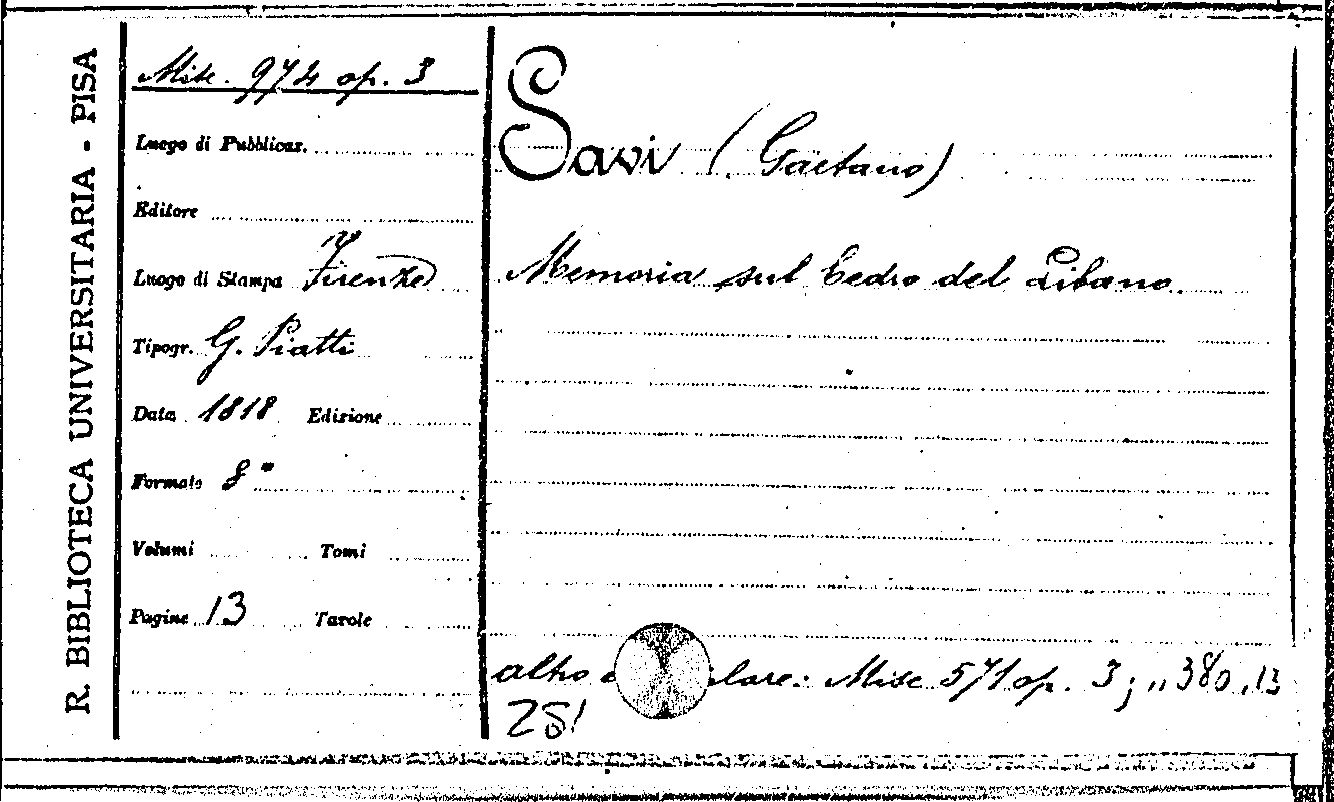 R. BIBLIOTECA UNIVERSITARIA - PISA
Misc. 974 op. 3
Luogo di Pubblicaz.
Editore
Luogo di Stampa Firenze
Tipogr. G. Piatti
Data 1818 Edizione
Formato 8°
Volumi Tomi
Pagine 13 Tavole
Savi (Gaetano)
Memoria sul Cedro del Libano.
altro e lare: Misc 571 op. 3; ,, 380, 13